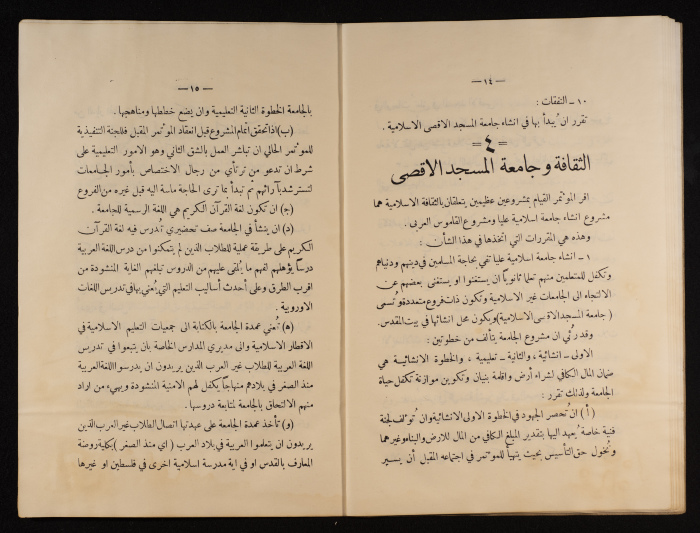 — ١٤ —
١٠ ـ النفقات :
تقرر ان يُبدأ بها في انشاء جامعة المسجد الاقصى الاسلامية .
= ٤ =
الثقافة وجامعة المسجد الاقصى
اقر المؤتمر القيام بمشروعين عظيمين يتعلقان بالثقافة الاسلامية هما
مشروع انشاء جامعة اسلامية عليا ومشروع القاموس العربي .
وهذه هي المقررات التي اتخذها في هذا الشأن :
١ ـ انشاء جامعة اسلامية عليا تفي بحاجة المسلمين في دينهم ودنياهم
وتكفل للمتعلمين منهم تعلما ثانويا ان يستغنوا او يستغني بعضهم عن
الالتجاء الى الجامعات غير الاسلامية وتكون ذات فروع متعددة وتسمى
( جامعة المسجد الاقصى الاسلامية) ويكون محل انشائها في بيت المقدس.
وقد رُئي ان مشروع الجامعة يتألف من خطوتين :
الاولى ـ انشائية ، والثانية ـ تعليمية ، والخطوة الانشائية هي
ضمان المال الكافي لشراء أرض واقامة بنيان وتكوين موازنة تكفل حياة
الجامعة ولذلك تقرر :
( أ ) ان تُحصر الجهود في الخطوة الاولى الانشائية وان تُؤلف لجنة
فنية خاصة يُعهد اليها بتقدير المبلغ الكافي من المال للارض والبناء وغيرهما
وتُخول حق التأسيس بحيث يتهيأ للمؤتمر في اجتماعه المقبل أن يسير
— ١٥ —
بالجامعة الخطوة الثانية التعليمية وان يضع خططها ومناهجها .
(ب) اذا تحقق اتمام المشروع قبل انعقاد المؤتمر المقبل فللجنة التنفيذية
للمؤتمر الحالي ان تباشر العمل بالشق الثاني وهو الامور التعليمية على
شرط ان تدعو من ترتأي من رجال الاختصاص بأمور الجامعات
لتسترشد بآرائهم ثم تبدأ بما ترى الحاجة ماسة اليه قبل غيره من الفروع
(ج) ان تكون لغة القرآن الكريم هي اللغة الرسمية للجامعة .
(د) ان ينشأ في الجامعة صف تحضيري تُدرس فيه لغة القرآن
الكريم على طريقة عملية للطلاب الذين لم يتمكنوا من درس اللغة العربية
درسا يؤهلهم لفهم ما يُلقى عليهم من الدروس تبلغهم الغاية المنشودة من
اقرب الطرق وعلى أحدث أساليب التعليم التي يُعنى بها في تدريس اللغات
الاوروبية .
(ه) تُعنى عمدة الجامعة بالكتابة الى جمعيات التعليم الاسلامية في
الاقطار الاسلامية والى مديري المدارس الخاصة بان يتبعوا في تدريس
اللغة العربية للطلاب غير العرب الذين يريدون ان يدرسوا اللغة العربية
منذ الصغر في بلادهم منهاجا يكفل لهم الامنية المنشودة ويهيء من اراد
منهم الالتحاق بالجامعة لمتابعة دروسها .
(و) تأخذ عمدة الجامعة على عهدتها اتصال الطلاب غير العرب الذين
يريدون ان يتعلموا العربية في بلاد العرب ( اي منذ الصغر ) بكلية روضة
المعارف بالقدس او في اية مدرسة اسلامية اخرى في فلسطين او غيرها